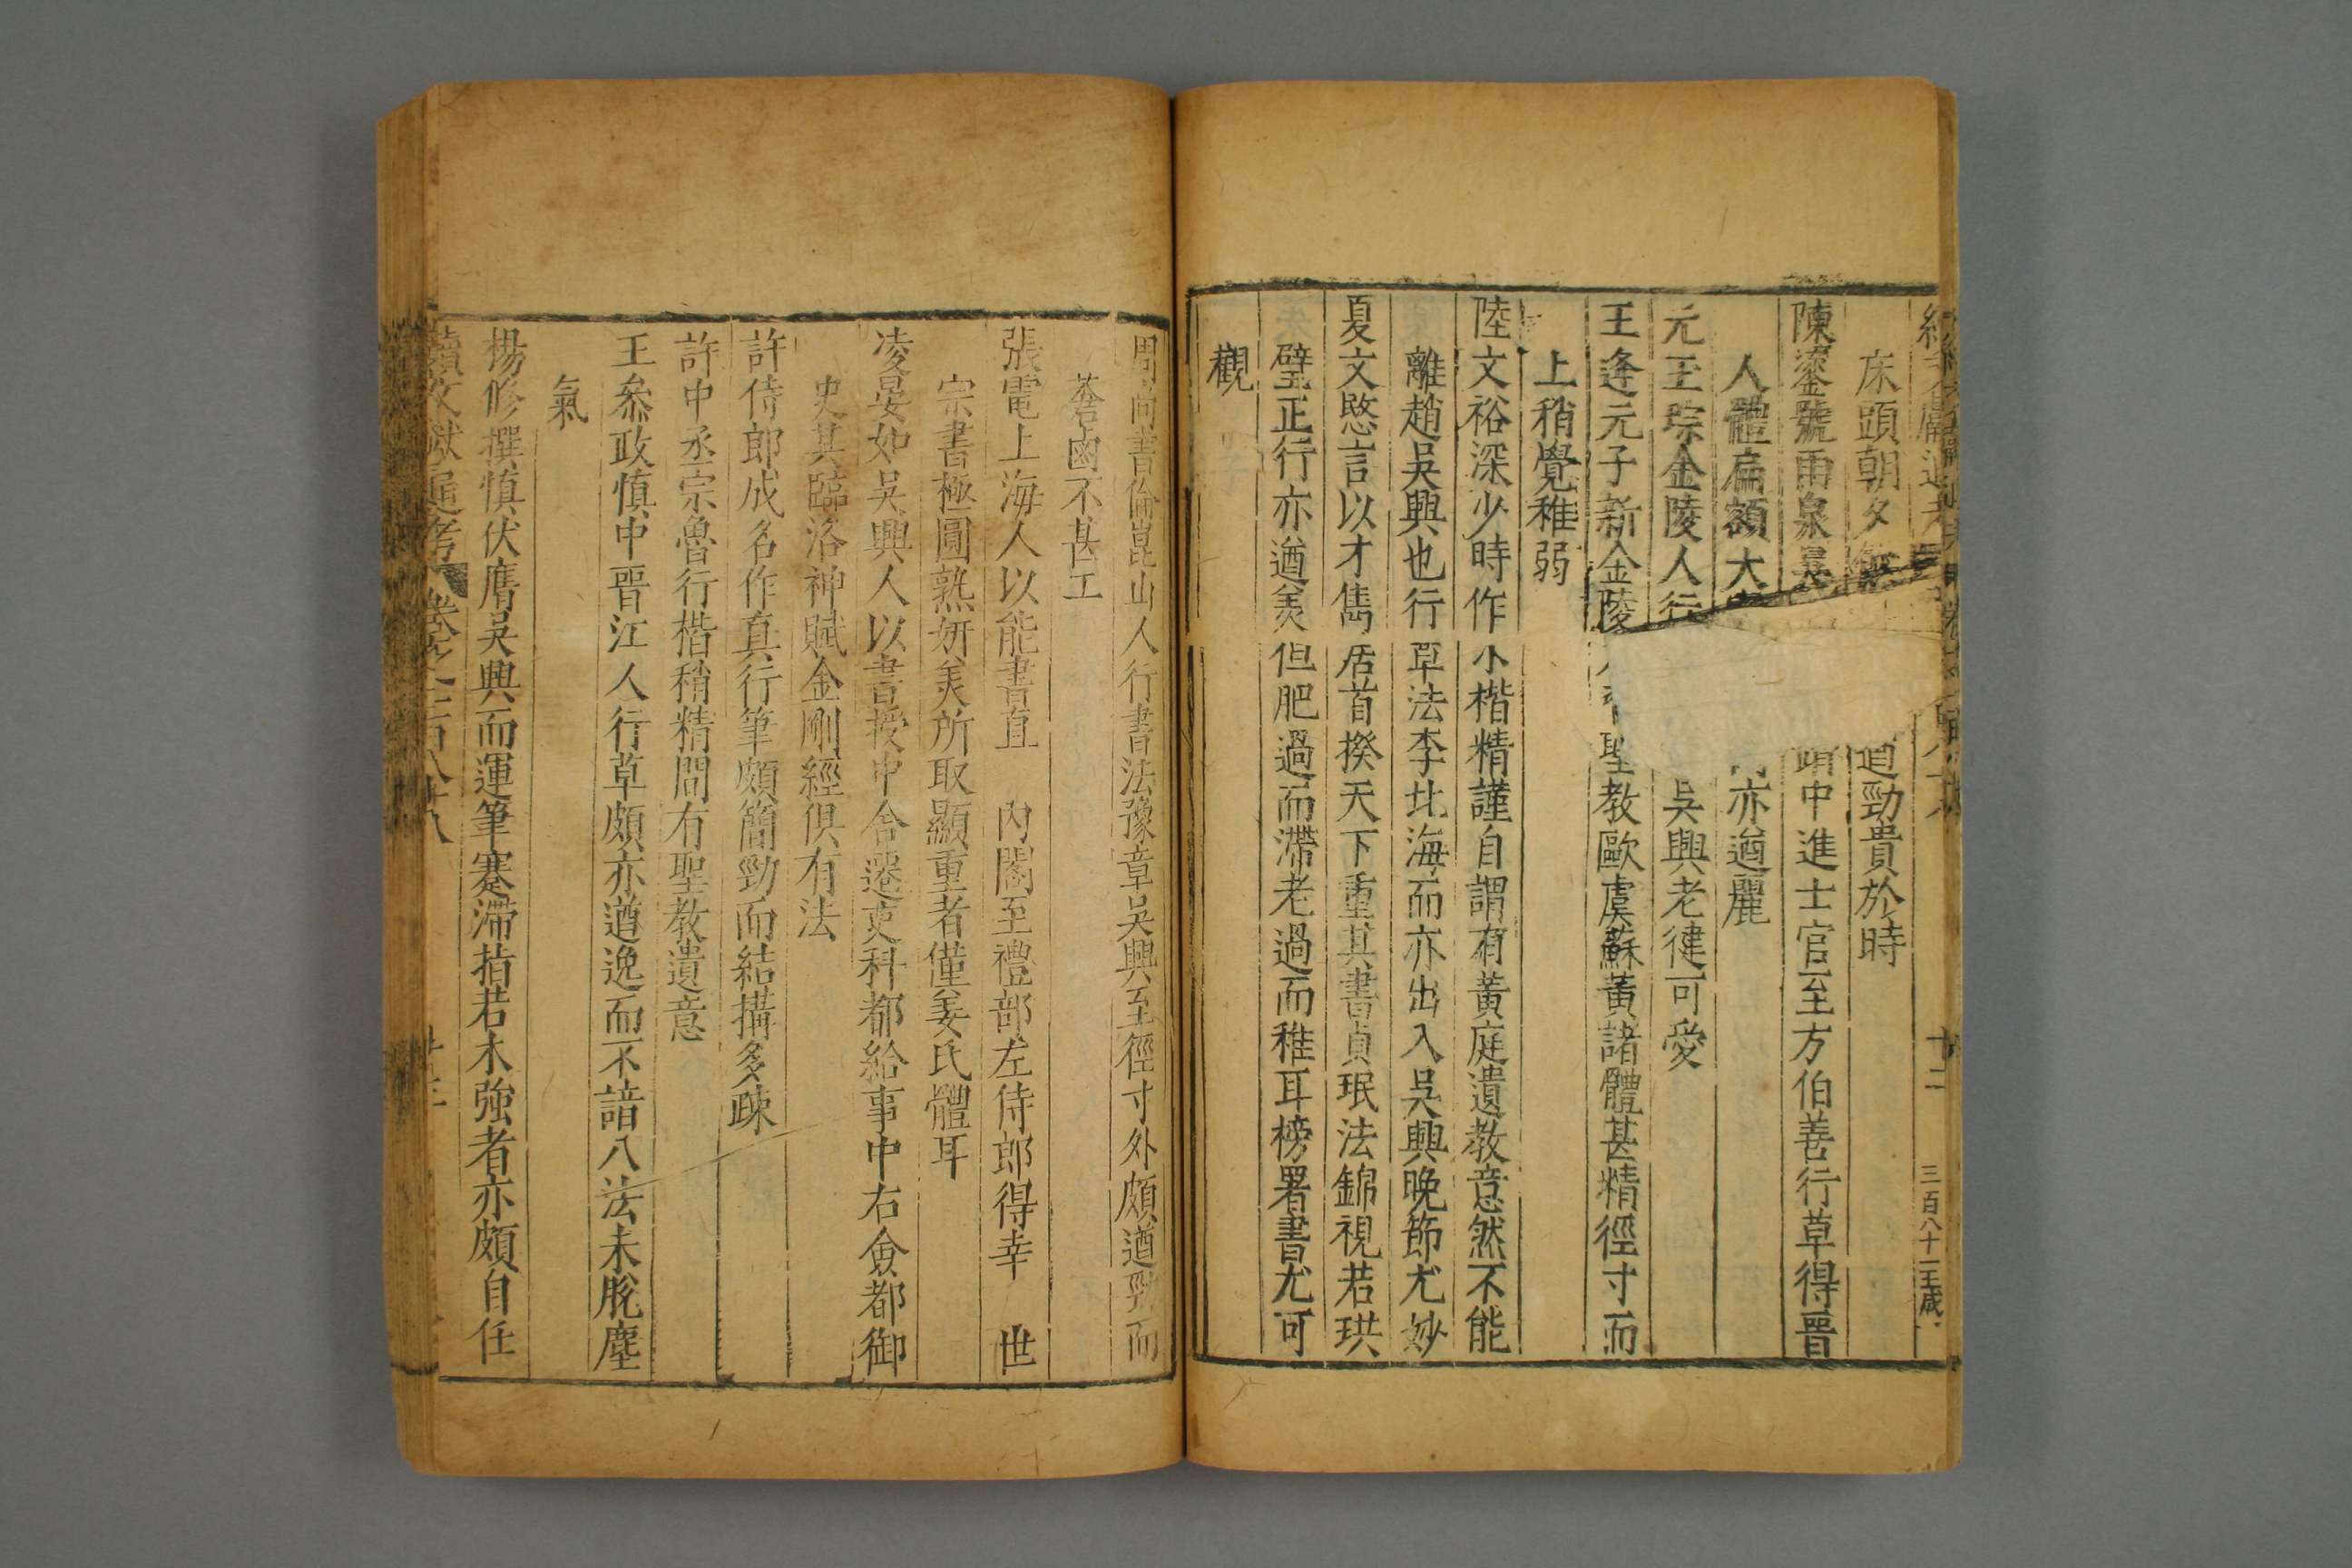 床頭朝夕
遒勁貴於時
陳鎏號雨泉
中進士官至方伯善行草得晉
人體扁額大
亦遒麗
元玉琮金陵人行
吳興老健可愛
王逢元子新金陵
聖教歐虞蘇黃諸體甚精徑寸而
上稍覺稚弱
陸文裕深少時作小楷精謹自謂有黃庭遺教意然不能
離趙吳興也行草法李北海而亦出入吳興晚節尤妙
夏文愍言以才雋居首揆天下重其書貞珉法錦視若珙
璧正行亦遒美但肥過而滯老過而稚耳榜署書尤可
觀
十二
三百八十一王成
周尚書倫崑山人行書法豫章吳興至徑寸外頗遒勁而
莽鹵不甚工
張電上海人以能書直 內閣至禮部左侍郎得幸 世
宗書極圓熟妍美所取顯重者僅姜氏體耳
凌晏如吳興人以書授中舍遷吏科都給事中右僉都御
史其臨洛神賦金剛經俱有法
許侍郎成名作真行筆頗簡勁而結搆多疎
許中丞宗魯行楷稍精間有聖教遺意
王叅政慎中晉江人行草頗亦遒逸而不諳八法未脫塵
氣
楊修撰慎伏膺吳興而運筆蹇滯指若木強者亦頗自任
續文獻通考 卷之一百八十八